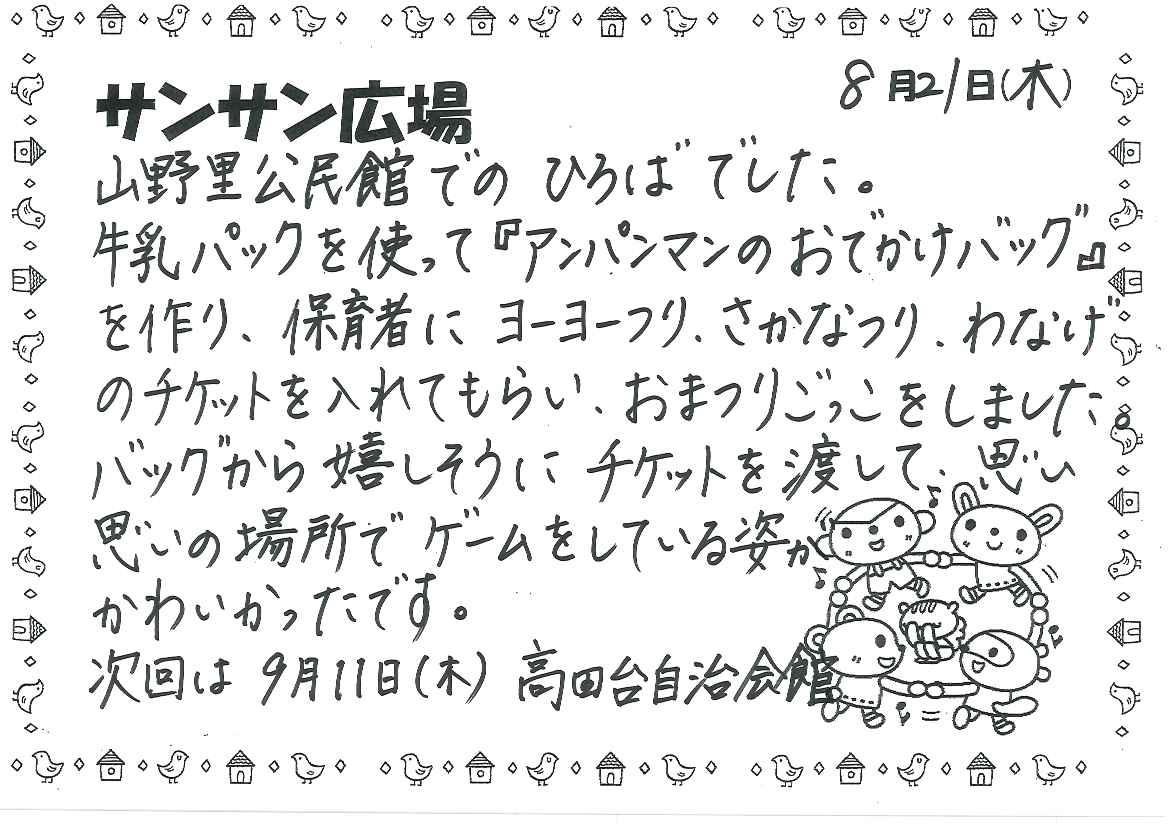 8月21日(木)
サンサン広場
山野里公民館での ひろばでした。
牛乳パックを使って『アンパンマンのおでかけバッグ』
を作り、保育者にヨーヨーつり、さかなつり、わなげ
のチケットを入れてもらい、おまつりごっこをしました。
バッグから嬉しそうにチケットを渡して、思い
思いの場所でゲームをしている姿が
かわいかったです。
次回は 9月11日(木) 高田台自治会館